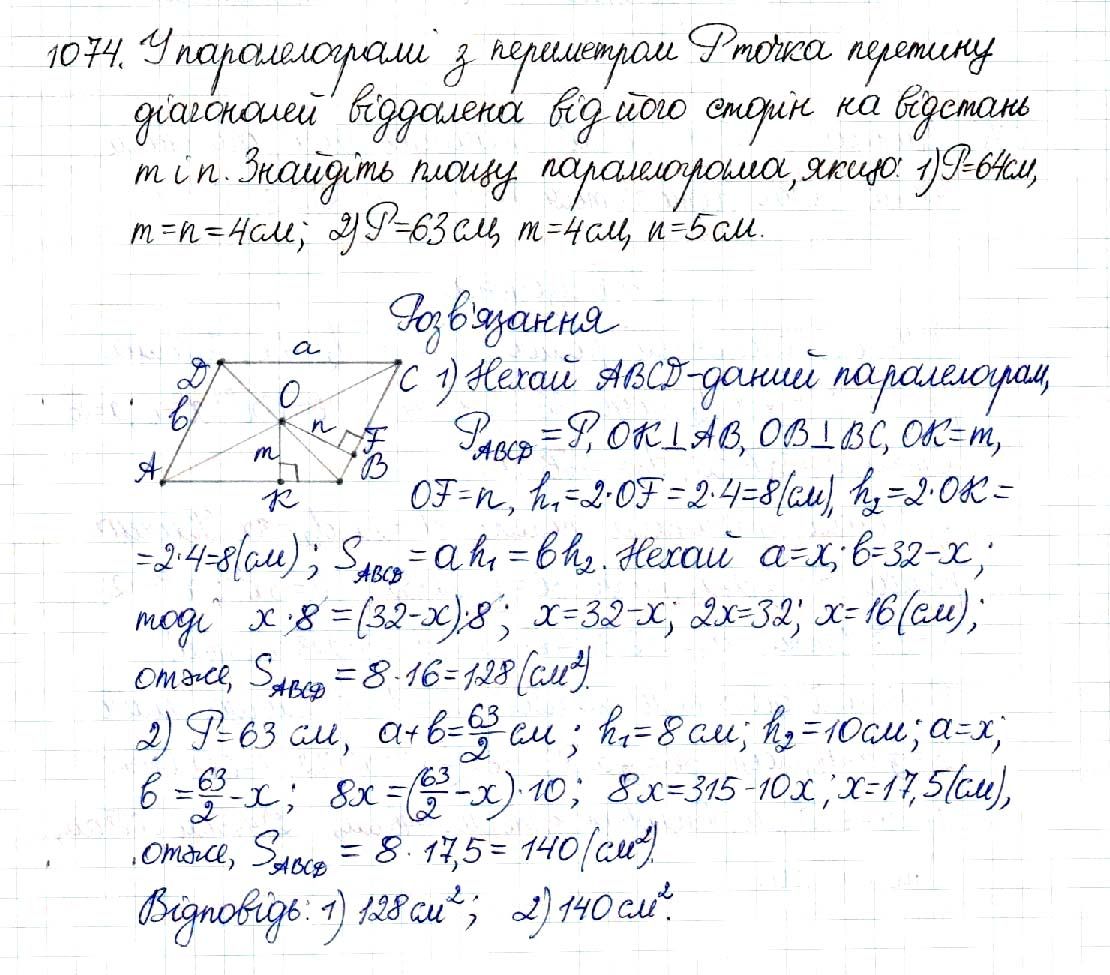 1074. У паралелограмі з периметром P точка перетину
діагоналей віддалена від його сторін на відстань
m і n. Знайдіть площу паралелограма, якщо: 1) P=64см,
m=n=4см; 2) P=63см, m=4см, n=5см.
Розв'язання
a
D C 1) Нехай ABCD-даний паралелограм,
b O n F
P_ABCD = P, OK⊥AB, OB⊥BC, OK=m,
A m B
K OF=n, h₁=2·OF=2·4=8(см), h₂=2·OK=
=2·4=8(см); S_ABCD = ah₁ = bh₂. Нехай a=x; b=32-x;
тоді x·8=(32-x)·8; x=32-x; 2x=32; x=16(см);
отже, S_ABCD = 8·16=128(см²).
2) P=63 см, a+b=63/2 см; h₁=8см; h₂=10см; a=x;
b=63/2-x; 8x=(63/2-x)·10; 8x=315-10x; x=17,5(см),
отже, S_ABCD = 8·17,5=140(см²).
Відповідь: 1) 128см²; 2) 140см².